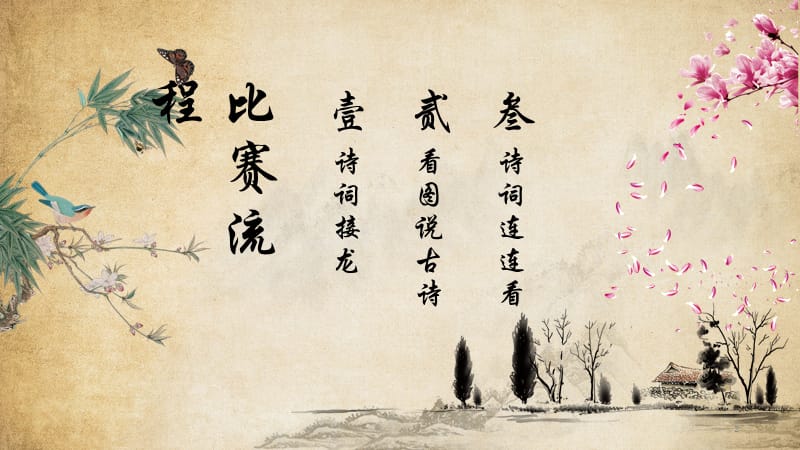 比赛流
程
壹
诗词接龙
贰
看图说古诗
叁
诗词连连看